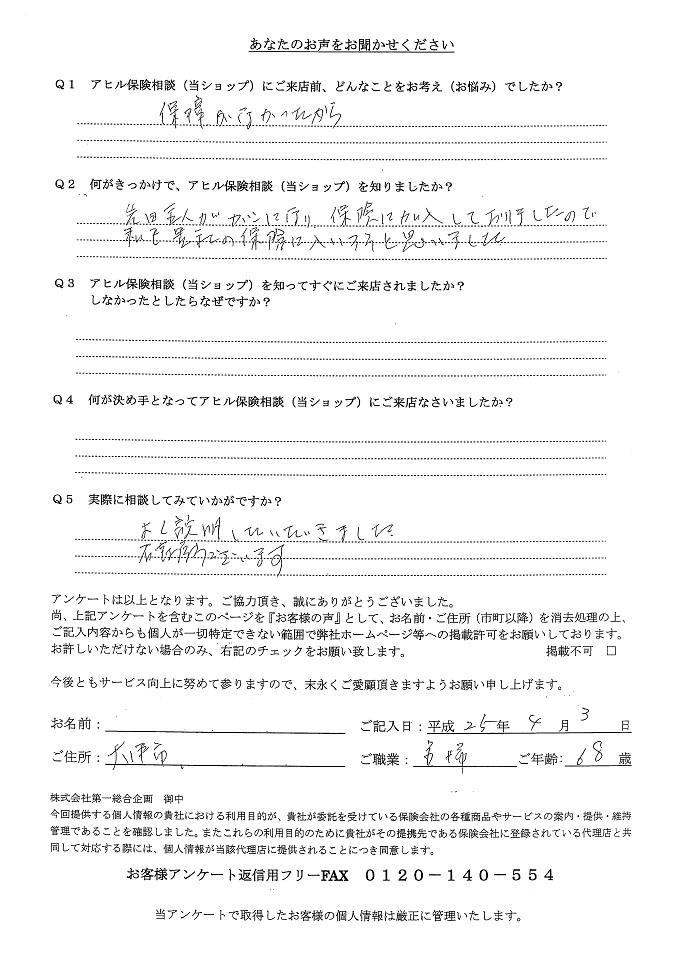 あなたのお声をお聞かせください
Q1 アヒル保険相談（当ショップ）にご来店前、どんなことをお考え（お悩み）でしたか？
保障がなかったから
Q2 何がきっかけで、アヒル保険相談（当ショップ）を知りましたか？
主人がガンになり、保険に加入しておりましたので
私も の保険に入いろうと思いました
Q3 アヒル保険相談（当ショップ）を知ってすぐにご来店されましたか？
しなかったとしたらなぜですか？
Q4 何が決め手となってアヒル保険相談（当ショップ）にご来店なさいましたか？
Q5 実際に相談してみていかがですか？
よく説明していただきました
ございます
アンケートは以上となります。ご協力頂き、誠にありがとうございました。
尚、上記アンケートを含むこのページを『お客様の声』として、お名前・ご住所（市町以降）を消去処理の上、
ご記入内容からも個人が一切特定できない範囲で弊社ホームページ等への掲載許可をお願いしております。
お許しいただけない場合のみ、右記のチェックをお願い致します。 掲載不可 □
今後ともサービス向上に努めて参りますので、末永くご愛顧頂きますようお願い申し上げます。
お名前： ご記入日：平成 25年 4月 3日
ご住所： 大津市 ご職業： 主婦 ご年齢： 68歳
株式会社第一総合企画 御中
今回提供する個人情報の貴社における利用目的が、貴社が委託を受けている保険会社の各種商品やサービスの案内・提供・維持
管理であることを確認しました。またこれらの利用目的のために貴社がその提携先である保険会社に登録されている代理店と共
同して対応する際には、個人情報が当該代理店に提供されることにつき同意します。
お客様アンケート返信用フリーFAX 0120－140－554
当アンケートで取得したお客様の個人情報は厳正に管理いたします。